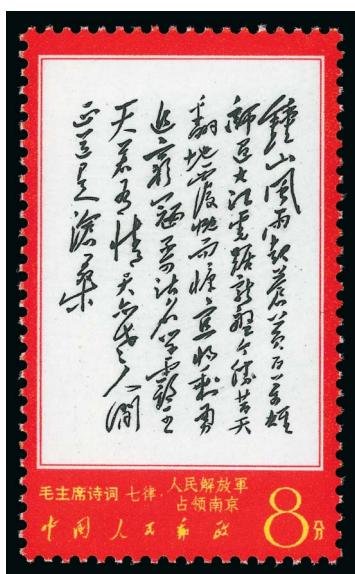 鐘山風雨起蒼黄百万雄
師过大江虎踞龍盤今勝昔天
翻地覆慨而慷宜将剩勇
追窮寇不可沽名学霸王
天若有情天亦老人间
正道是滄桑
毛主席诗词 七律·人民解放軍
占领南京
中國人民郵政
8分